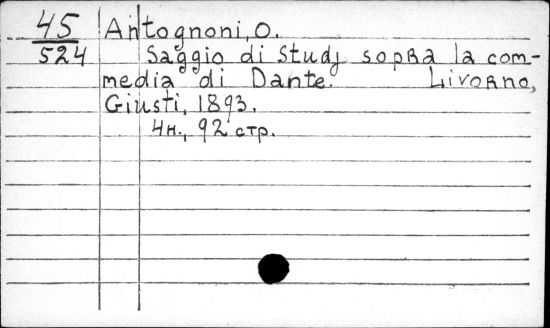 45 Antognoni, O.
524 Saggio di Studj sopra la com-
media di Dante. Livorno,
Giusti, 1893.
4н., 92 стр.